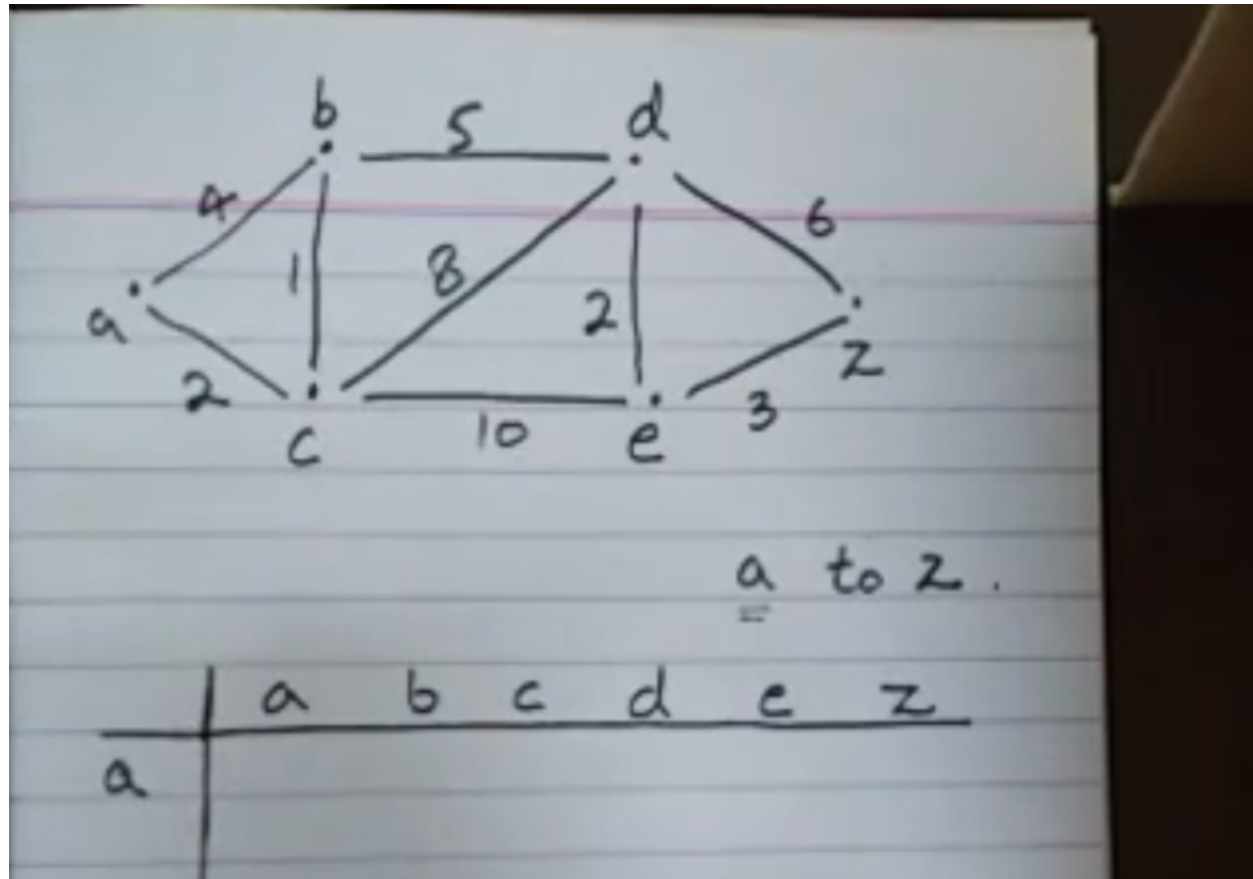 b 5 d
4 6
1 8
a 2 z
2 3
c 10 e
a to z.
a b c d e z
a